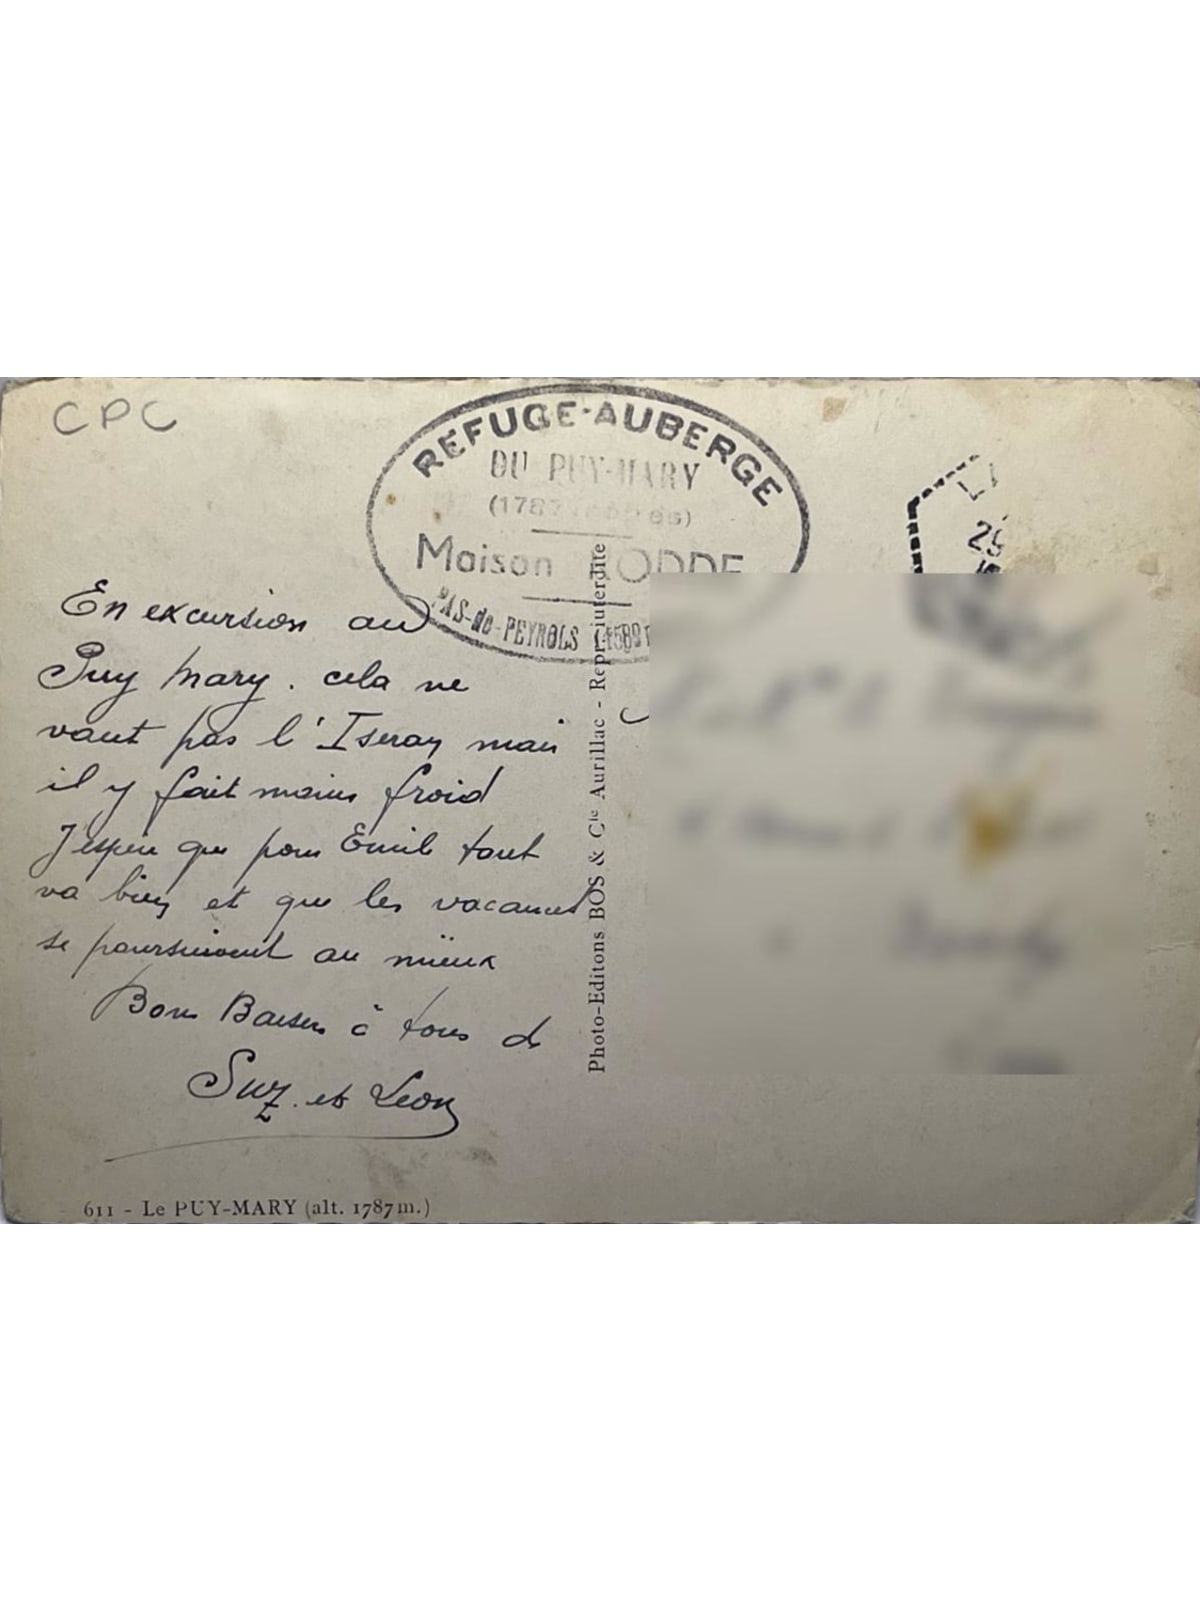 CPC
REFUGE-AUBERGE
DU PUY-MARY
(1787
Maison
PAS-de-PEYROLS
29
En excursion au
Puy Mary. cela ne
vaut pas l'Iseran mais
il y fait moins froid
J'espère que pour Emile tout
va bien et que les vacances
se poursuivent au mieux
Bons Baisers à tous de
Suz. et Leon
Photo-Editons BOS & Cie Aurillac - Repr. interdite
611 - Le PUY-MARY (alt. 1787 m.)